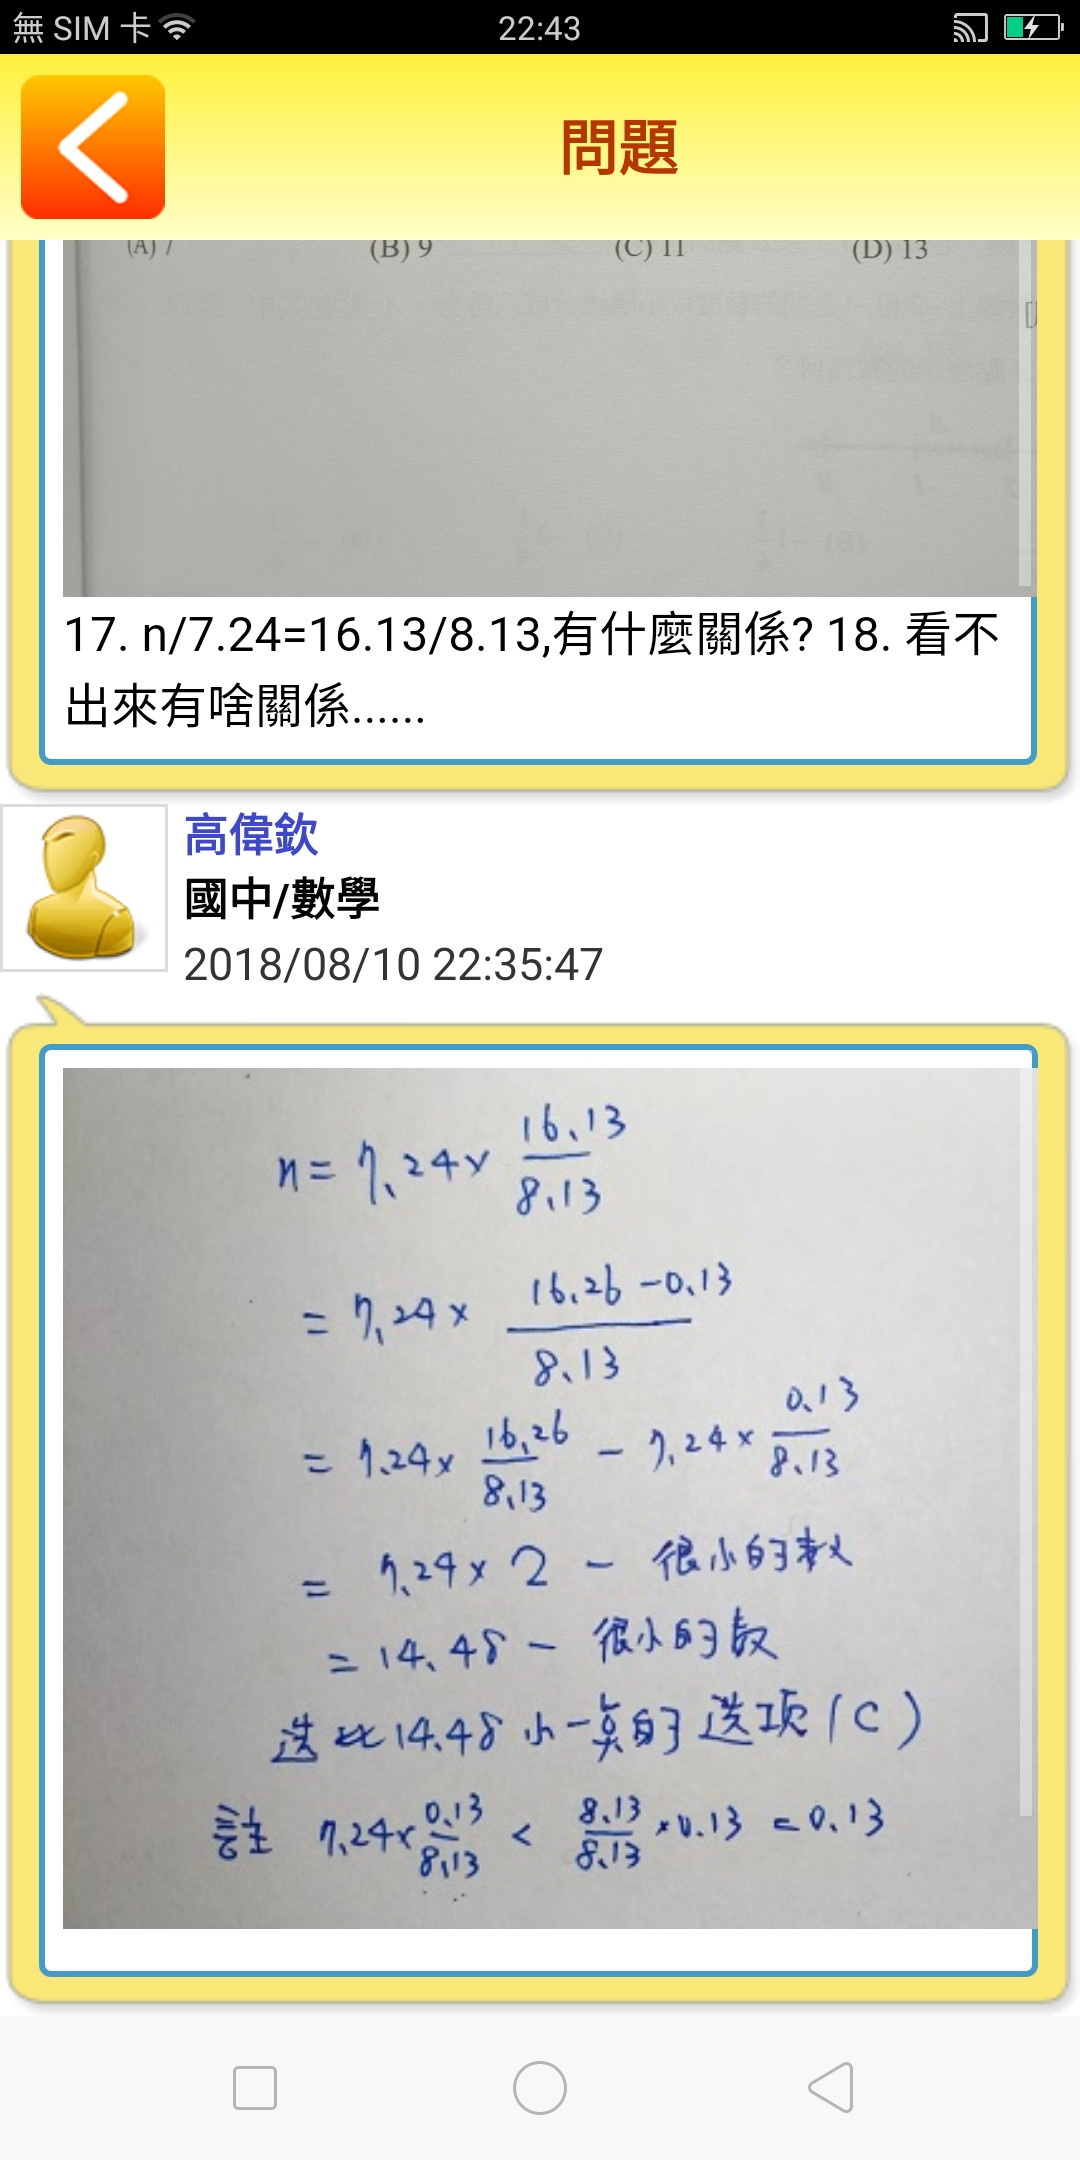 無 SIM 卡
22:43
問題
(A) 7 (B) 9 (C) 11 (D) 13
17. n/7.24=16.13/8.13,有什麼關係? 18. 看不
出來有啥關係......
高偉欽
國中/數學
2018/08/10 22:35:47
n = 7.24 × 16.13/8.13
= 7.24 × (16.26 - 0.13)/8.13
= 7.24 × 16.26/8.13 - 7.24 × 0.13/8.13
= 7.24 × 2 - 很小的数
= 14.48 - 很小的数
选比14.48小一点的选项(C)
註 7.24 × 0.13/8.13 < 8.13/8.13 × 0.13 = 0.13